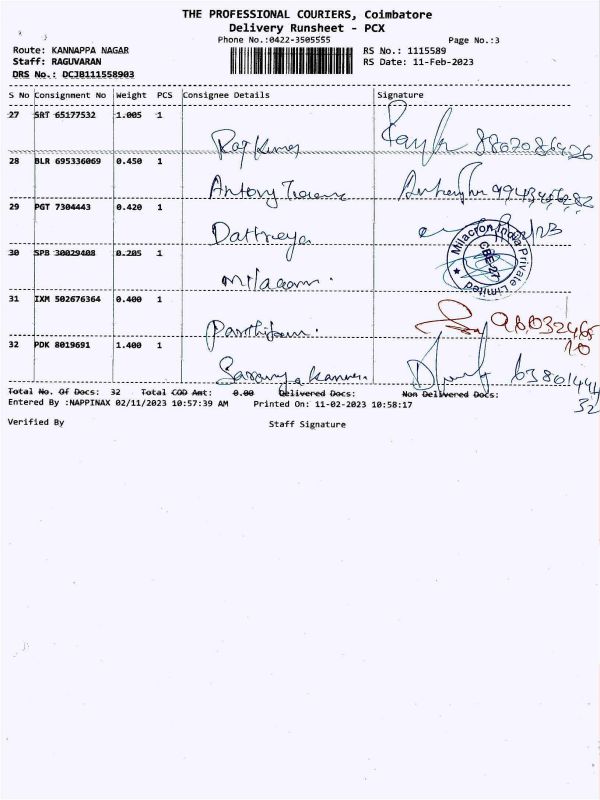 THE PROFESSIONAL COURIERS, Coimbatore
Delivery Runsheet - PCX
Phone No.:0422-3505555 Page No.:3
Route: KANNAPPA NAGAR RS No.: 1115589
Staff: RAGUVARAN RS Date: 11-Feb-2023
DRS No.: DCJB111558903
S No Consignment No Weight PCS Consignee Details Signature
27 SRT 65177532 1.005 1
Raj Kumar
28 BLR 695336069 0.450 1
Antony
29 PGT 7304443 0.420 1
Dattreya
30 SPB 30029408 0.205 1
Milacron India Private Limited
CBE-27
31 IXM 502676364 0.400 1
32 PDK 8019691 1.400 1
Total No. Of Docs: 32 Total COD Amt: 0.00 Delivered Docs: Non Delivered Docs:
Entered By :NAPPINAX 02/11/2023 10:57:39 AM Printed On: 11-02-2023 10:58:17
32
Verified By Staff Signature